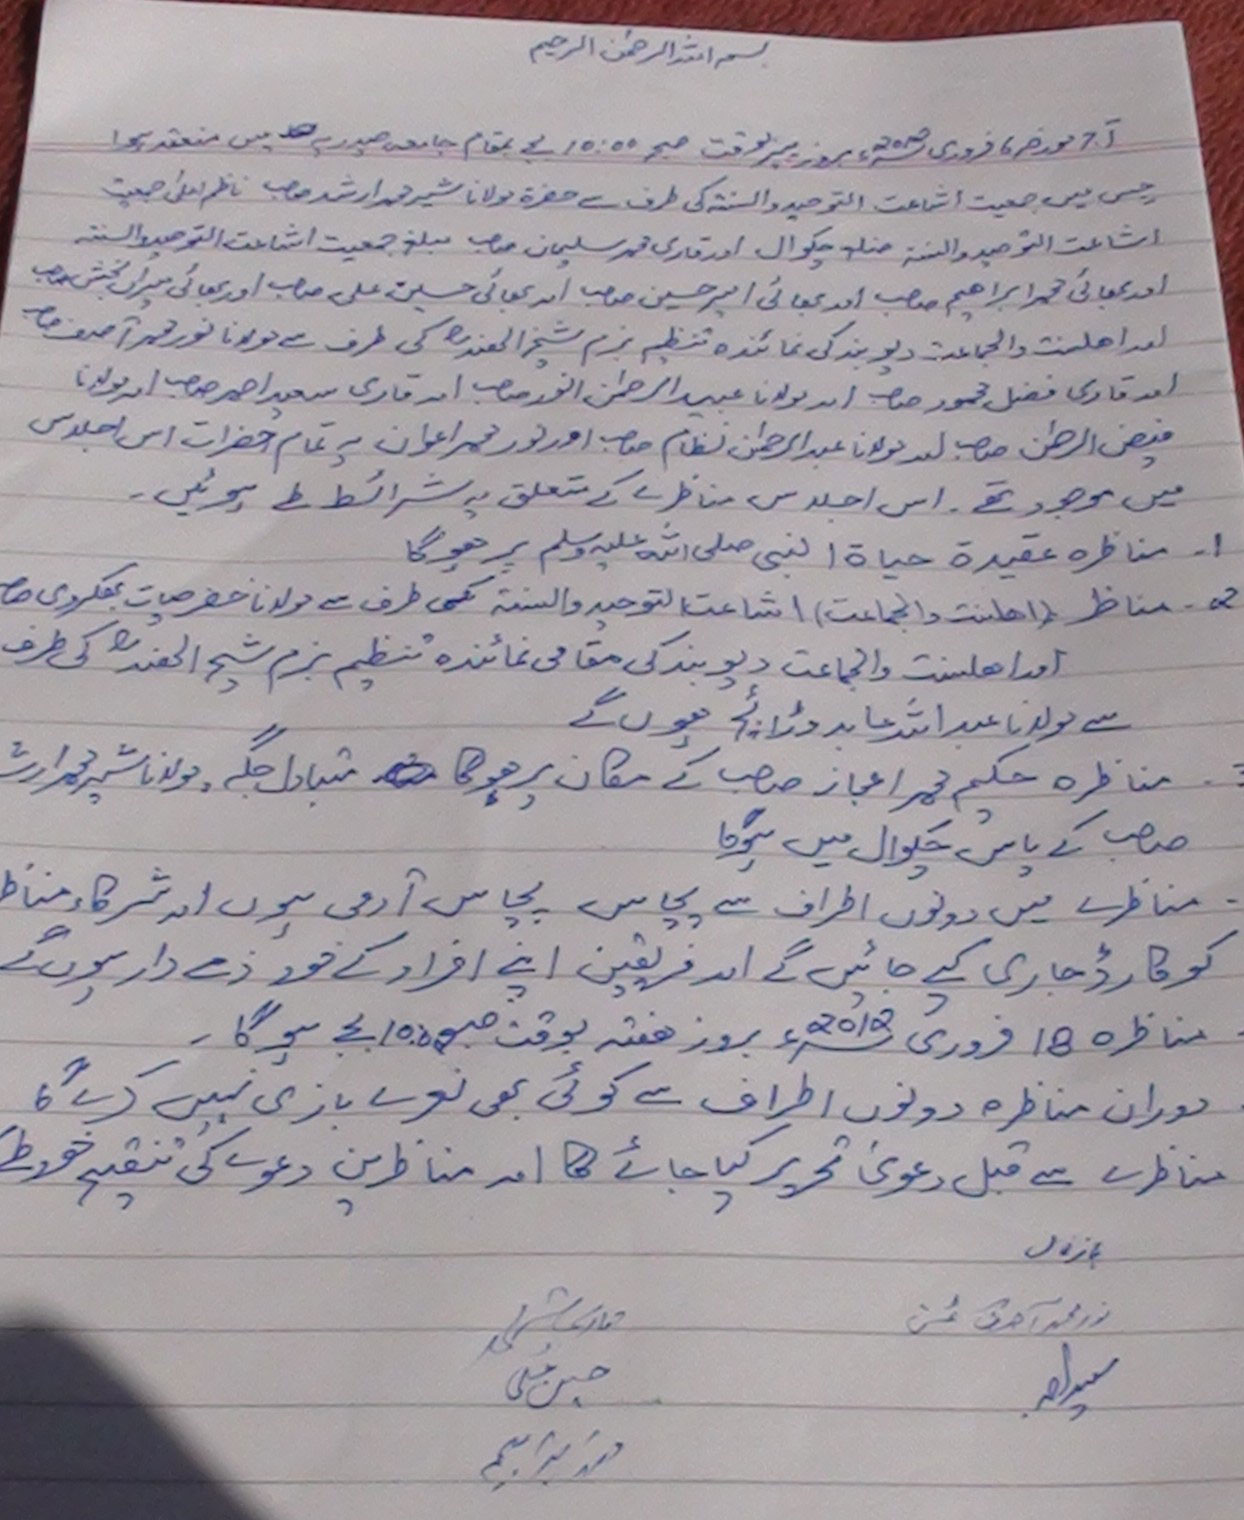 بسم اللہ الرحمٰن الرحیم
آج مورخہ 6 فروری 2012ء بروز پیر بوقت صبح 10:00 بجے بمقام جامعہ حیدریہ میں منعقد ہوا
جس میں جمعیت اشاعت التوحید والسنۃ کی طرف سے حضرۃ مولانا شیر محمد ارشد صاحب ناظم اعلیٰ جمعیت
اشاعت التوحید والسنۃ ضلع چکوال اور قاری محمد سلیمان صاحب مبلغ جمعیت اشاعت التوحید والسنۃ
اور بھائی محمد ابراھیم صاحب اور بھائی امیر حسین صاحب اور بھائی حسین علی صاحب اور بھائی میراں بخش صاحب
اور اھلسنت والجماعت دیوبند کی نمائندہ تنظیم بزم شیخ الھندؒ کی طرف سے مولانا نور محمد آصف صاحب
اور قاری فضل محمود صاحب اور مولانا عبید الرحمٰن انور صاحب اور قاری سعید احمد صاحب اور مولانا
فیض الرحمٰن صاحب اور مولانا عبدالرحمٰن نظام صاحب اور نور محمد اعوان یہ تمام حضرات اس اجلاس
میں موجود تھے۔ اس اجلاس مناظرے کے متعلق یہ شرائط طے ہوئیں۔
1۔ مناظرہ عقیدۃ حیاۃ النبی صلی اللہ علیہ وسلم پر ھوگا
2۔ مناظر (اھلسنت والجماعت) اشاعت التوحید والسنۃ کی طرف سے مولانا خضر حیات بھکروی صاحب
اور اھلسنت والجماعت دیوبند کی مقامی نمائندہ تنظیم بزم شیخ الھندؒ کی طرف
سے مولانا عبداللہ عابد وڑائچ ھوں گے
3۔ مناظرہ حکیم محمد اعجاز صاحب کے مکان پر ھوگا متبادل جگہ مولانا شیر محمد ارشد
صاحب کے پاس چکوال میں ہوگا
۔ مناظرے میں دونوں اطراف سے پچاس پچاس آدمی ہوں اور شرکاء مناظرہ
کو کارڈ جاری کیے جائیں گے اور فریقین اپنے افراد کے خود ذمے دار ہوں گے
۔ مناظرہ 18 فروری 2012ء بروز ھفتہ بوقت صبح 10:00 بجے ہوگا۔
۔ دوران مناظرہ دونوں اطراف سے کوئی بھی نعرے بازی نہیں کرے گا
مناظرے سے قبل دعویٰ تحریر کیا جائے گا اور مناظرین دعوے کی تنقیح خود طے
نور محمد آصف
حسین علی
سعید احمد
محمد ابراہیم